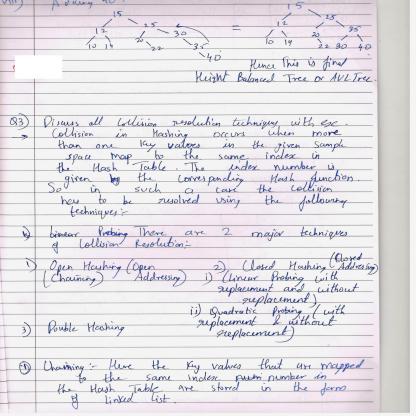 Adding 40
15 = 15
12 25 12 25
10 14 20 30 10 14 20 35
22 35 22 30 40
40
Hence This is final
Height Balanced Tree or AVL Tree.
Q3) Discuss all Collision resolution techniques with ex.
→ Collision in Hashing occurs when more
than one key values in the given sample
space map to the same index in
the Hash Table. The index number is
given by the corresponding Hash function.
So in such a case the collision
has to be resolved using the following
techniques:-
Linear Probing There are 2 major techniques
of Collision Resolution:-
1) Open Hashing (Open 2) Closed Hashing (Closed
(Chaining) Addressing) Addressing)
i) (Linear Probing with
replacement and without
replacement)
ii) Quadratic Probing (with
replacement & without
replacement)
3) Double Hashing
① Chaining:- Here the key values that are mapped
to the same index number in
the Hash Table are stored in the form
of linked list.